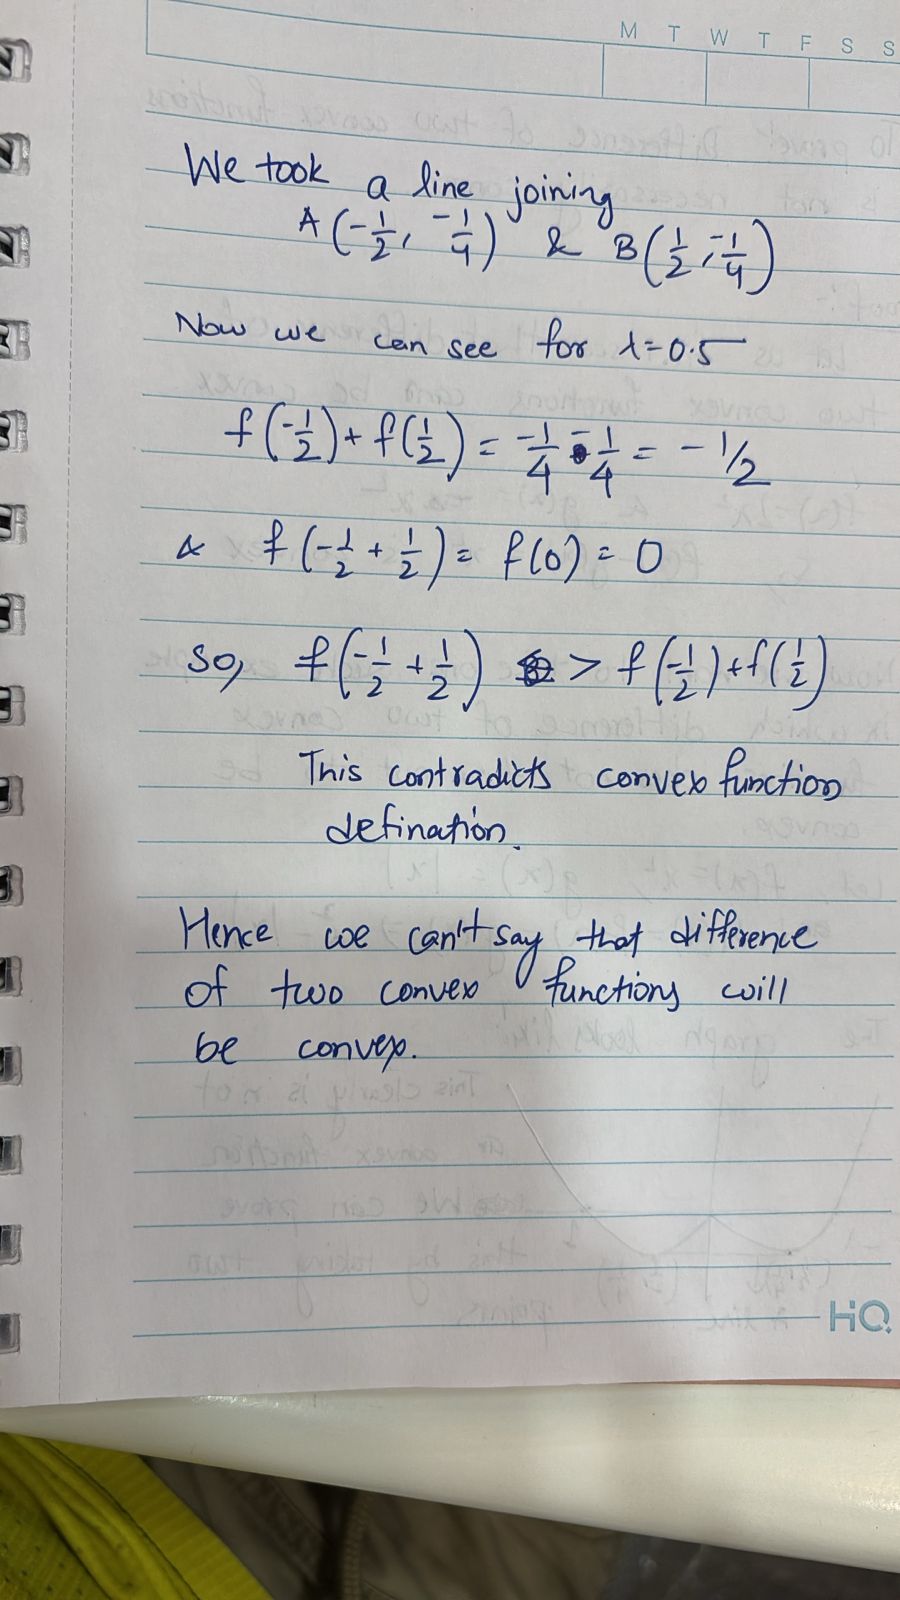 M T W T F S S
We took a line joining
A(-1/2, -1/4) & B(1/2, -1/4)
Now we can see for λ=0.5
f(-1/2) + f(1/2) = -1/4 - 1/4 = -1/2
& f(-1/2 + 1/2) = f(0) = 0
So, f(-1/2 + 1/2) > f(-1/2) + f(1/2)
This contradicts convex function
defination.
Hence we can't say that difference
of two convex functions will
be convex.
HQ